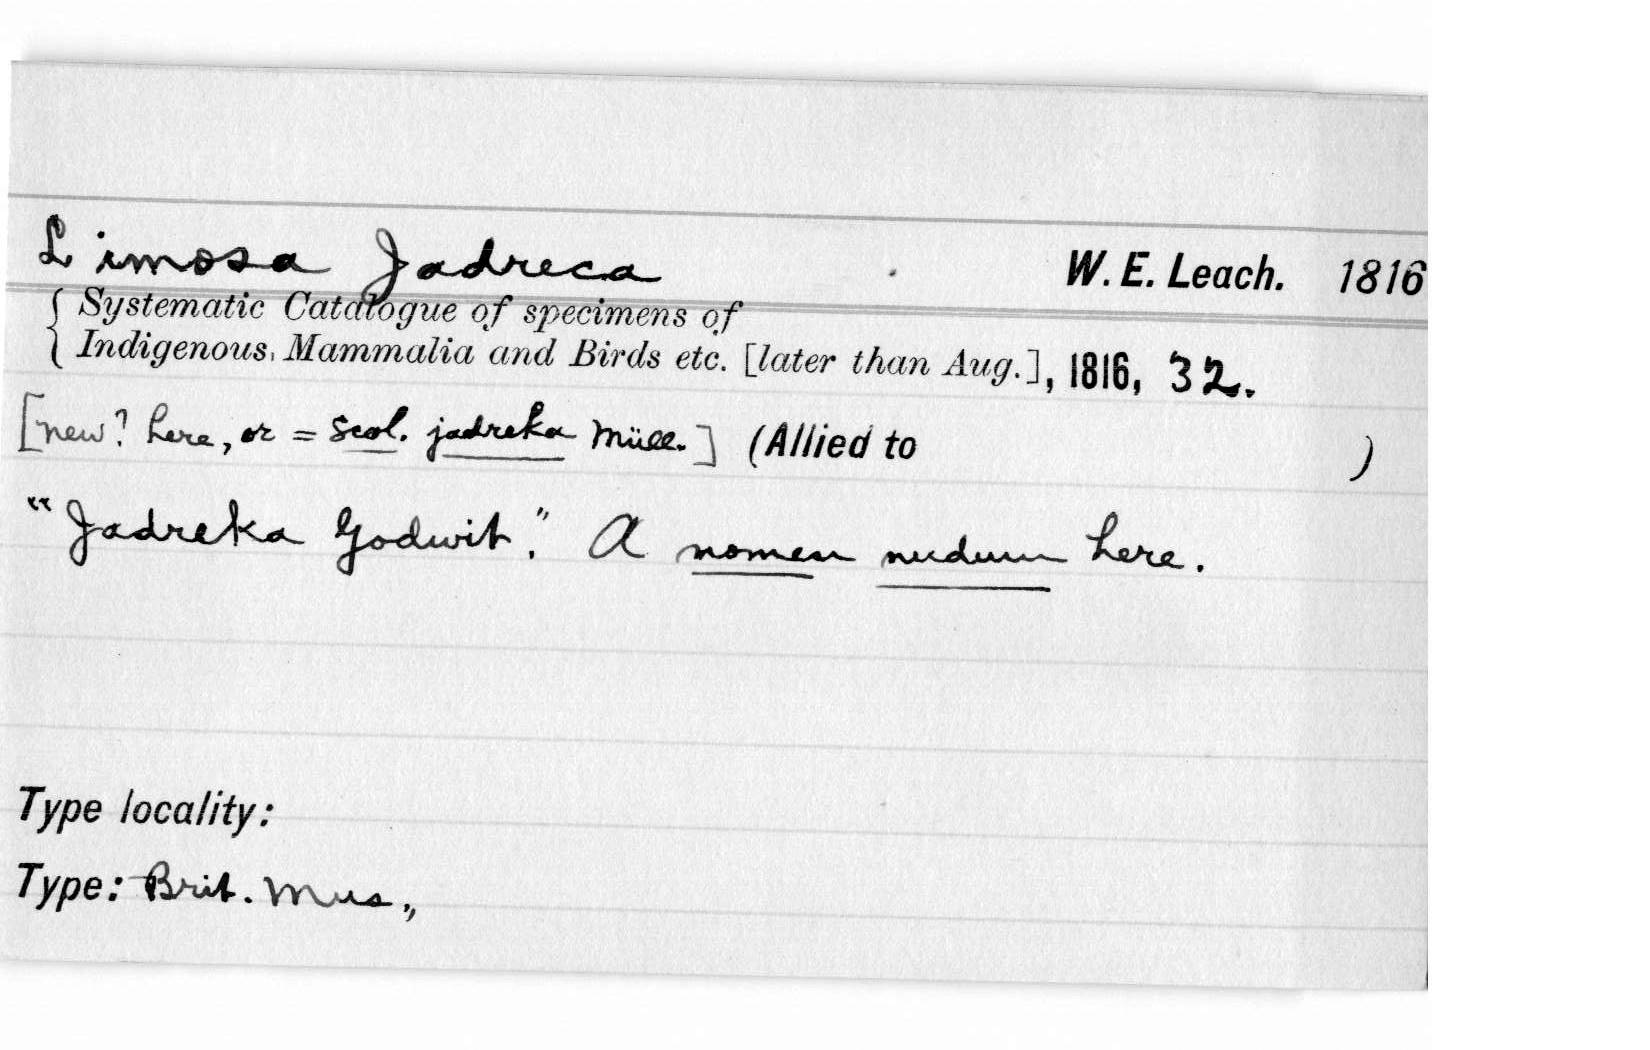 Limosa Jadreca W. E. Leach. 1816
Systematic Catalogue of specimens of
Indigenous, Mammalia and Birds etc. [later than Aug.], 1816, 32.
[new? here, or = Scol. jadreka Müll.] (Allied to )
"Jadreka Godwit." A nomen nudum here.
Type locality:
Type: Brit. Mus.,